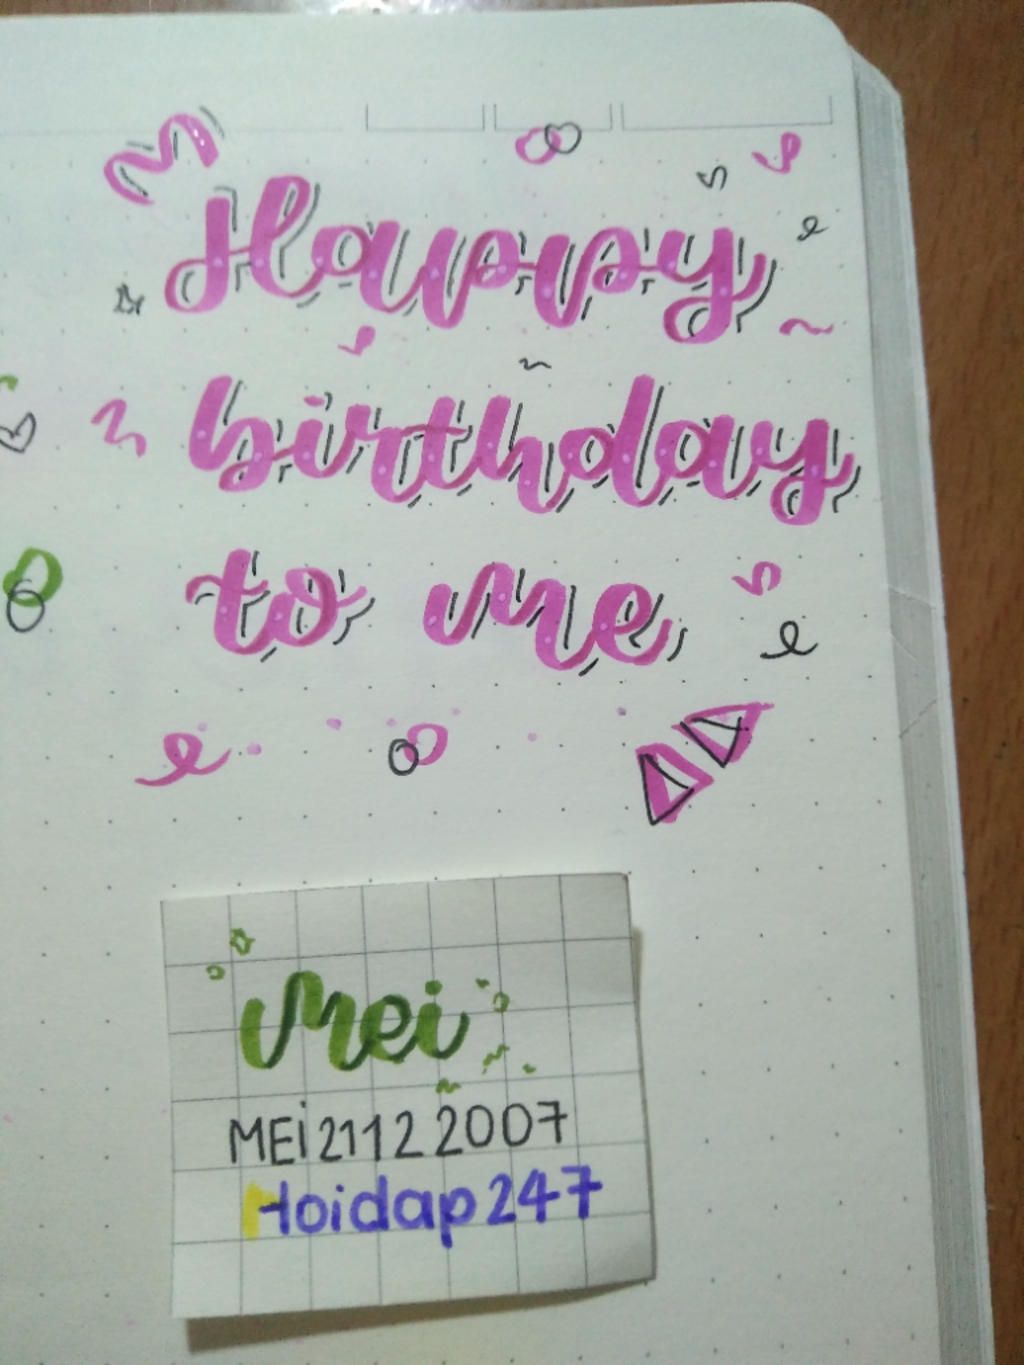 Happy
birthday
to me
Mei
MEi21122007
Hoidap247